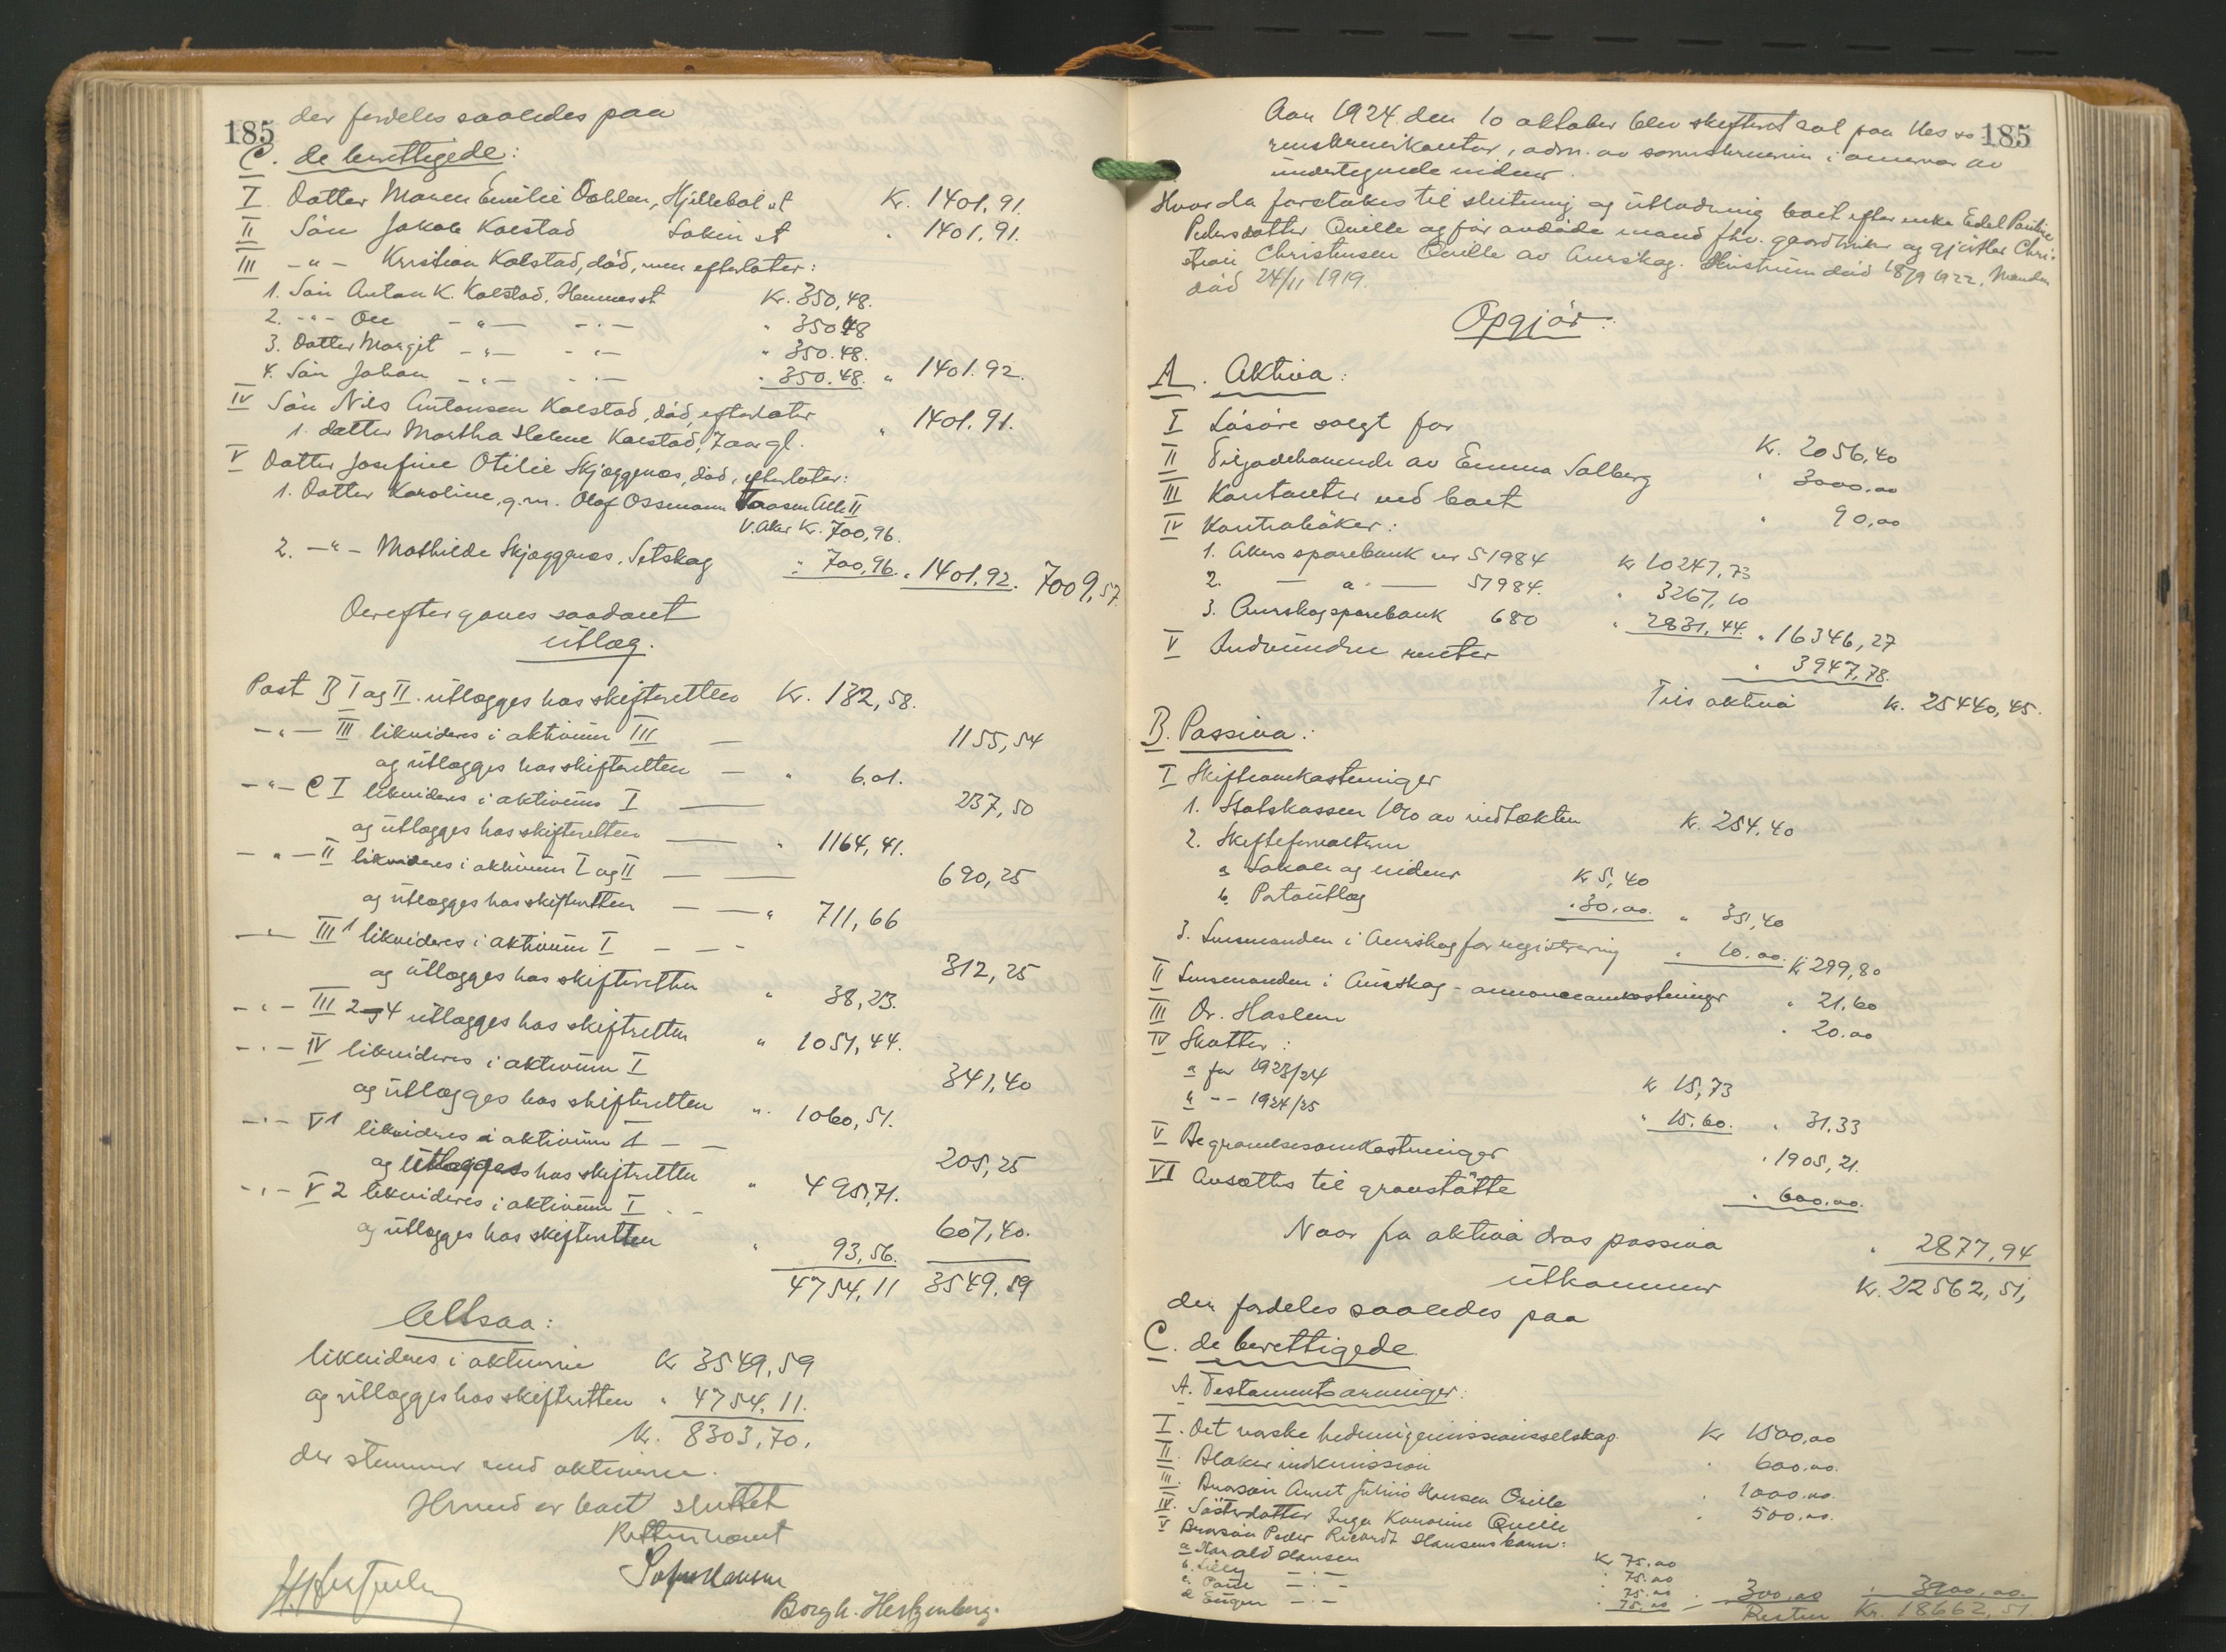 185
der fordeles saaledes paa
C. de berettigede:
I. Datter Maren Emilie Dahlen, Hjellebøl st Kr. 1401,91.
II Søn Jakob Kolstad Løken st " 1401,91.
III -"- Kristian Kolstad, død, men efterlater:
1. Søn Anton K. Kolstad, Hemnes st Kr. 350,48.
2. -"- Ole -"- -"- " 350,48
3. Datter Margit -"- -"- " 350.48.
4. Søn Johan -"- -"- " 350.48. " 1401.92.
IV Søn Nils Antonsen Kolstad, død, efterlater
1. datter Martha Helene Kolstad, 7 aar gl. " 1401.91.
V Datter Josefine Otilie Skjøggenæs, død, efterlater:
1. Datter Karoline, g.m. Olaf Ossmann Traasen Alle II
V. Aker Kr. 700,96.
2. -"- Mathilde Skjøggenæs, Setskog " 700,96. " 1401.92. 7009,57
Derefter gøres saadant
utlæg.
Post B I og II utlægges hos skifteretten Kr. 132,58.
-"- III likvideres i aktivum III — 1155,54
og utlægges hos skifteretten — " 6.01.
-"- C I likvideres i aktivum I — 237,50
og utlægges hos skifteretten — " 1164,41.
-"- II likvideres i aktivum I og II — 690,25
og utlægges hos skifteretten — " 711,66
-"- III 1 likvideres i aktivum I - - - 312,25
og utlægges hos skifteretten " 38,23.
-"- III 2-4 utlægges hos skifteretten " 1051,44.
-"- IV likvideres i aktivum I 341,40
og utlægges hos skifteretten " 1060,51.
-"- V 1 likvideres i aktivum I - - 205,25
og utlægges hos skifteretten " 495,71.
-"- V 2 likvideres i aktivum I - - 607,40.
og utlægges hos skifteretten " 93,56.
4754,11 3549.59
Altsaa:
likvideres i aktiverne Kr 3549,59
og utlægges hos skifteretten " 4754,11.
Kr. 8303,70.
der stemmer med aktiverne.
Hermed er boet sluttet
Retten hævet
Borgh. Hertzenberg.
185
Aar 1924 den 10 oktober blev skifteret sat paa Nes so-
renskriverkontor, adm. av sorenskriveren i nærvær av
undertegnede vidner.
Hvorda foretokes til slutning og utlodning boet efter enke Edel Pauline
Pedersdatter Quille og før avdøde mand fhv. gaardbruker og gjæstgiver Chri-
stian Christensen Quille av Aurskog. Hustruen død 18/9 1922. Manden
død 24/11 1919.
Opgjør:
A. Aktiva:
I Løsøre solgt for Kr. 2056,40
II Tilgodehavende av Emma Solberg " 3000.00
III Kontanter ved boet " 90,00
IV Kontrabøker:
1. Akers sparebank nr 51984 Kr 10247,73
2. — " — 51984. " 3267,10
3. Aurskog sparebank 680 " 2831,44. " 16346,27
V Indvundne renter " 3947,78.
Tils aktiva Kr. 25440,45.
B. Passiva:
I Skifteomkostninger
1. Statskassen 1% av indtækten Kr. 254,40
2. Skifteforvalteren
a Lokale og vidner Kr 5,40
b. Portoutlæg " 30,00. " 35,40
3. Lensmanden i Aurskog for registrering " 10.00. Kr 299,80
II Lensmanden i Aurskog - annonceomkostninger " 21,60
III Dr. Haslem " 20.00
IV Skatter:
a for 1923/24 Kr 15,73
b -- 1924/25 " 15.60. " 31,33
V Begravelsesomkostninger " 1905,21.
VI Avsættes til gravstøtte " 600.00.
Naar fra aktiva dras passiva " 2877,94
utkommer Kr. 22562,51,
der fordeles saaledes paa
C. de berettigede
A. Testamentsarvinger:
I. Det norske hedningemissionsselskap Kr 1500,00
II. Blaker indremission " 600.00.
III. Brorsøn Anut Julius Hansen Quille " 1000.00.
IV. Søsterdatter Inga Karoline Quille " 500,00.
V Brorsøn Peder Rikardt Hansens barn:
a Harald Hansen Kr 75,00
b. Lilly -"- " 75.00
c. Paul -"- " 75.00
d Eugen -"- " 75,00 " 300,00 " 3900,00.
Resten Kr. 18662,51.